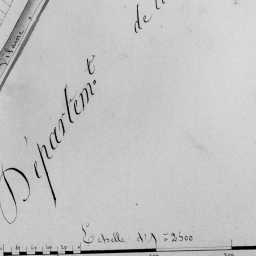 Vilaine
de l
Départem.t
Echelle d'1 à 2500